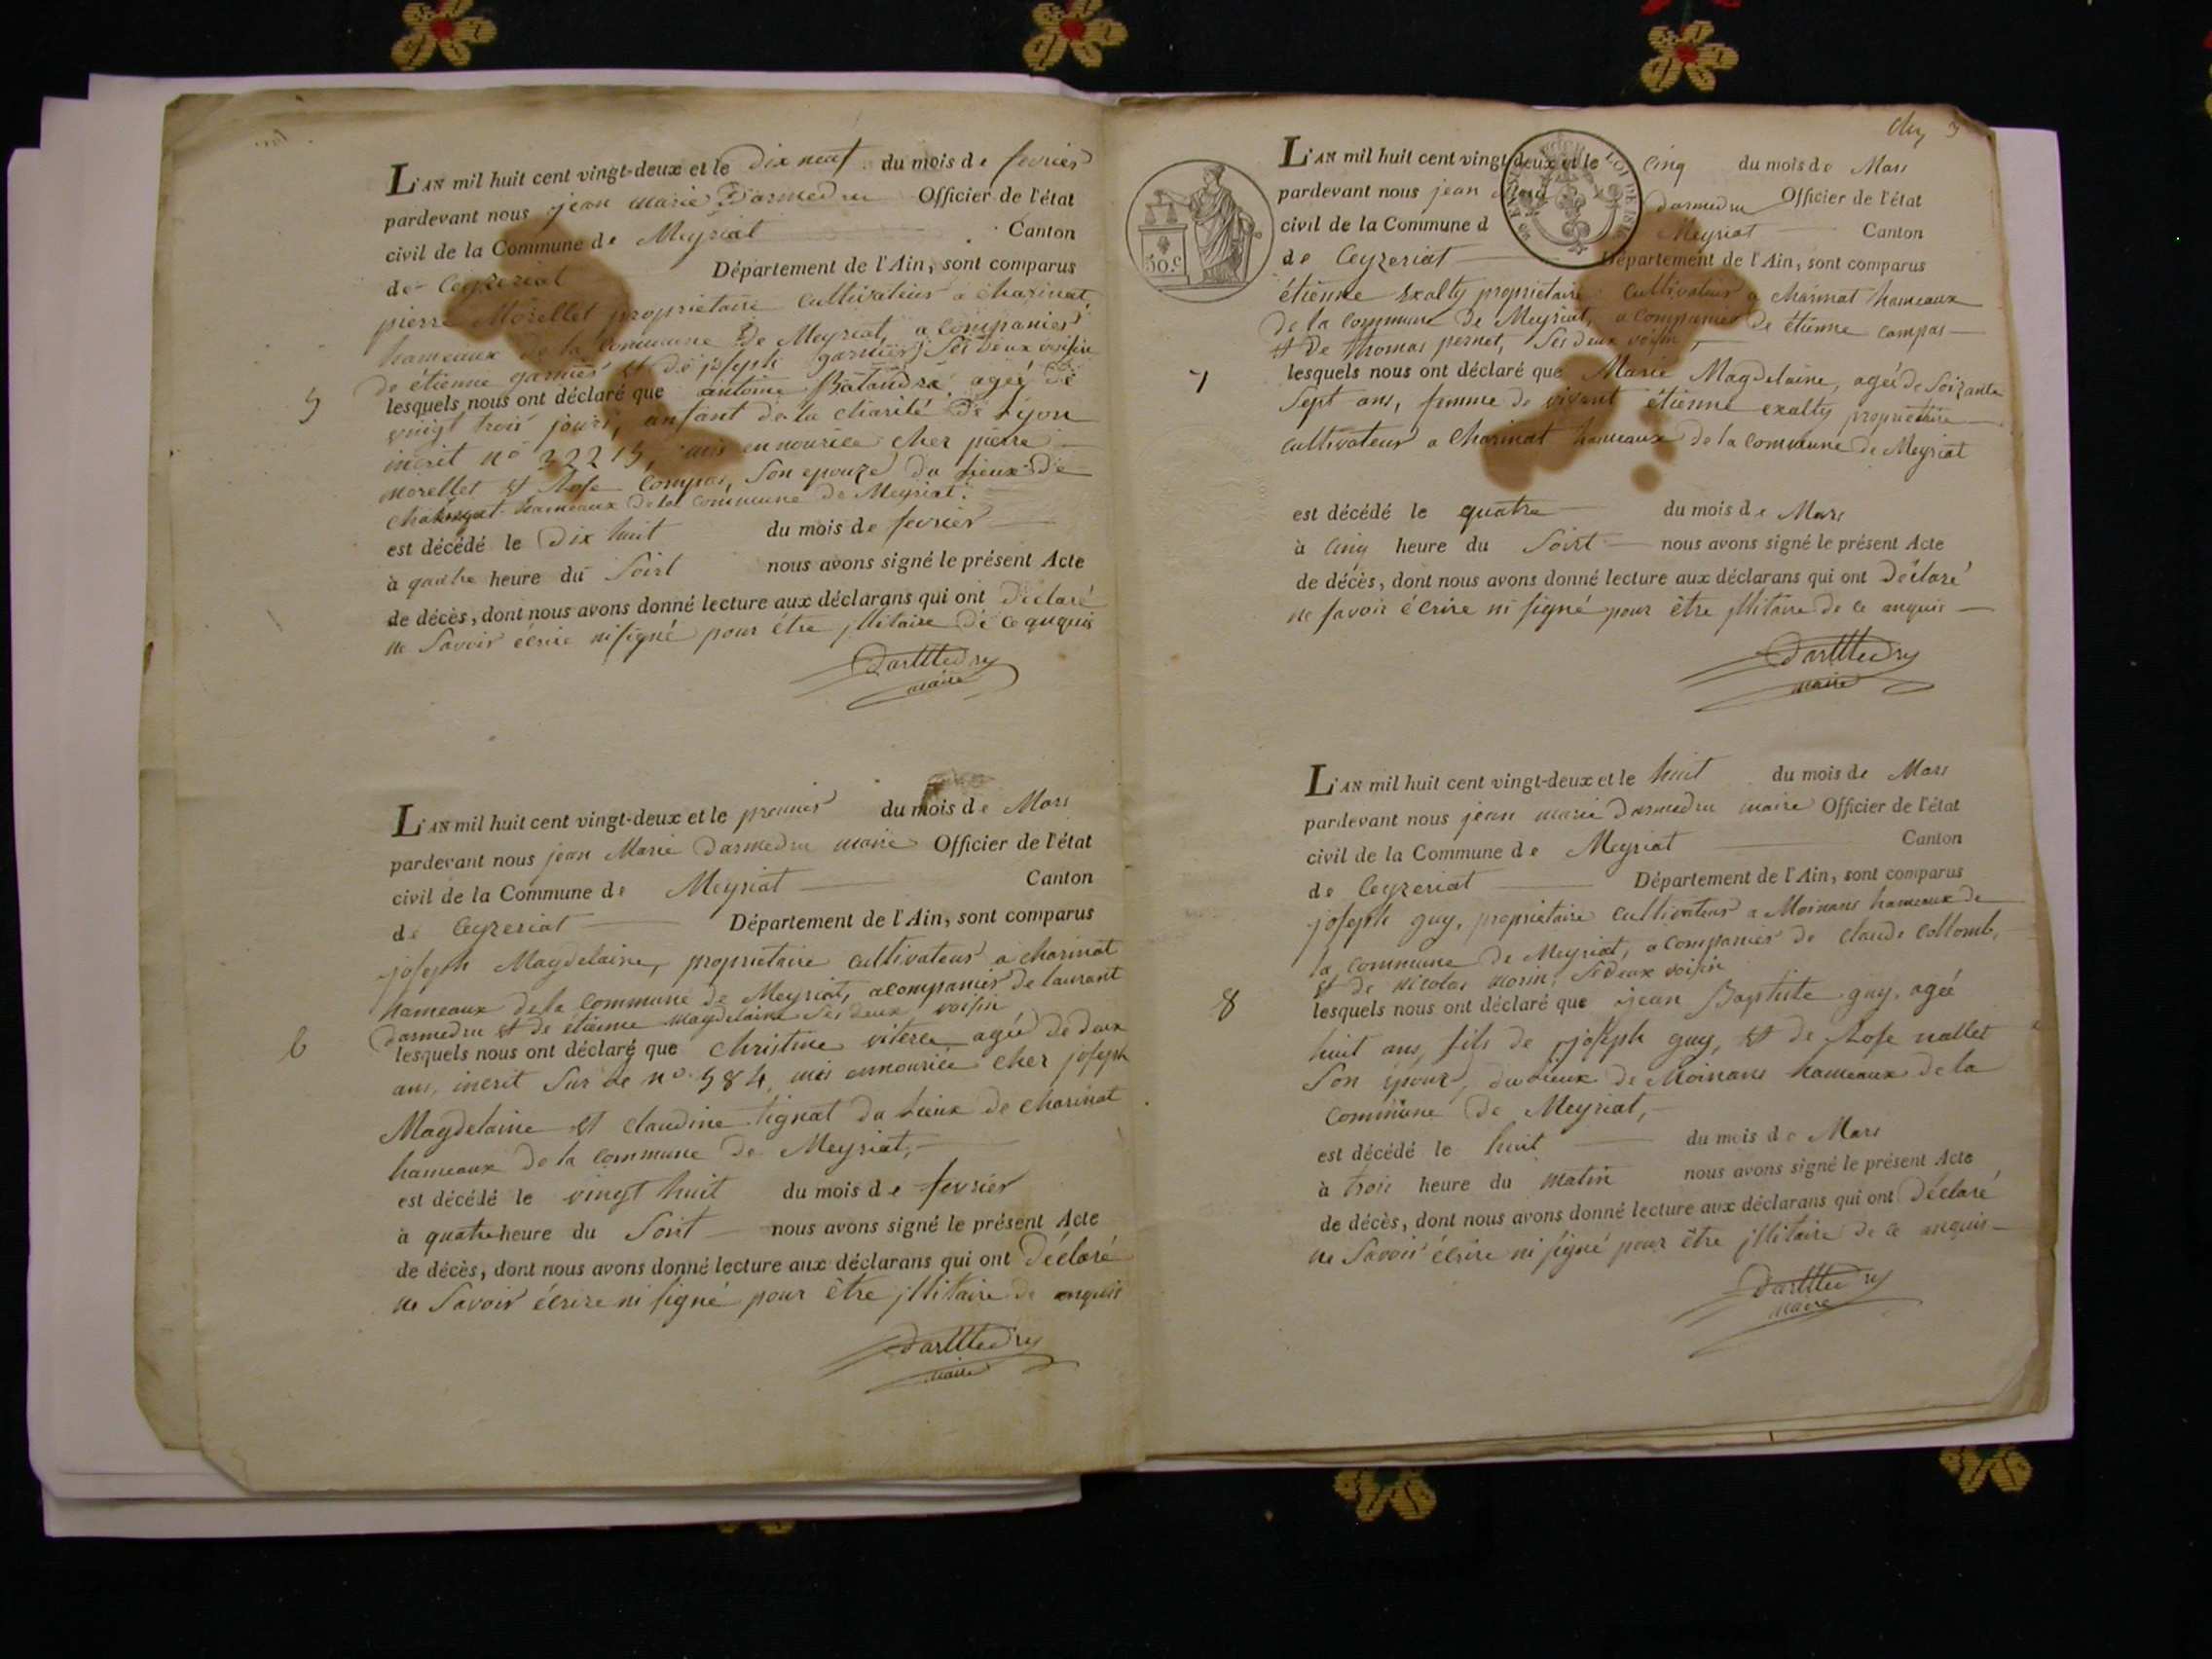 L'AN mil huit cent vingt-deux et le dix neuf du mois de fevrier
pardevant nous jean marie Darmedru Officier de l'état
civil de la Commune de Meyriat Canton
de Ceyzeriat Département de l'Ain, sont comparus
pierre Morellet propriétaire cultivateur a charinat,
hameaux de la commune de Meyriat, a companier
de étienne garnier et de joseph garnier, ses deux voisin
5 lesquels nous ont déclaré que antoine agée de
vingt trois jours, enfant de la charité de Lyon
incrit n° 32215, mis en nourice cher pierre
morellet et Rose Compas, son epouze du lieux de
hameaux de la commune de Meyriat.
est décédé le dix huit du mois de fevrier
à quatre heure du Soirt nous avons signé le présent Acte
de décès, dont nous avons donné lecture aux déclarans qui ont déclaré
ne Savoir écrire ni signé pour être jllitaire de ce
Darmedru
maire
L'AN mil huit cent vingt-deux et le premier du mois de Mars
pardevant nous jean Marie Darmedru maire Officier de l'état
civil de la Commune de Meyriat Canton
de Ceyzeriat Département de l'Ain, sont comparus
joseph Magdelaine, propriétaire cultivateur a charinat
hameaux de la commune de Meyriat, acompanier de laurant
darmedru et de étienne magdelaine ses deux voisin
6 lesquels nous ont déclaré que Christine viterce agée de deux
ans, incrit Sur le n° 584, mis ennouriée cher joseph
Magdelaine et claudine tignat du Lieux de charinat
hameaux de la commune de Meyriat,
est décédé le vingt huit du mois de fevrier
à quatre heure du Soirt nous avons signé le présent Acte
de décès, dont nous avons donné lecture aux déclarans qui ont Déclaré
ne Savoir écrire ni signé pour être jllitaire de enquis
Darmedru
maire
3
50.c
LOI DE 1816
L'AN mil huit cent vingt-deux et le cinq du mois de Mars
pardevant nous jean darmedru Officier de l'état
civil de la Commune d Meyriat Canton
de Ceyzeriat Département de l'Ain, sont comparus
étienne Exalty propriétaire cultivateur a charinat hameaux
de la commune de Meyriat, a companier de étienne compas
et de thomas pernet, Ses deux voisin,
7 lesquels nous ont déclaré que Marie Magdelaine, agée de Soixante
Sept ans, femme de vivant étienne exalty propriétaire
cultivateur a Charinat hameaux de la commune de Meyriat
est décédé le quatre du mois de Mars
à cinq heure du Soirt nous avons signé le présent Acte
de décès, dont nous avons donné lecture aux déclarans qui ont Déclaré
ne savoir écrire ni signé pour être jllitaire de ce anquis
Darmedru
maire
L'AN mil huit cent vingt-deux et le huit du mois de Mars
pardevant nous jean marie Darmedru maire Officier de l'état
civil de la Commune de Meyriat Canton
de Ceyzeriat Département de l'Ain, sont comparus
joseph guy, propriétaire cultivateur a Moinans hameaux de
la commune de Meyriat, a companier de claude collomb,
et de nicolas morin, Sedeux voisin
8 lesquels nous ont déclaré que jean Baptiste guy, agée
huit ans, fils de joseph guy, et de Rose nallet
Son épouz, du Lieux de Moinans hameaux de la
commune de Meyriat,
est décédé le huit du mois de Mars
à trois heure du matin nous avons signé le présent Acte
de décès, dont nous avons donné lecture aux déclarans qui ont Déclaré
ne Savoir écrire ni signé pour être jllitaire de ce anquis
Darmedru
maire